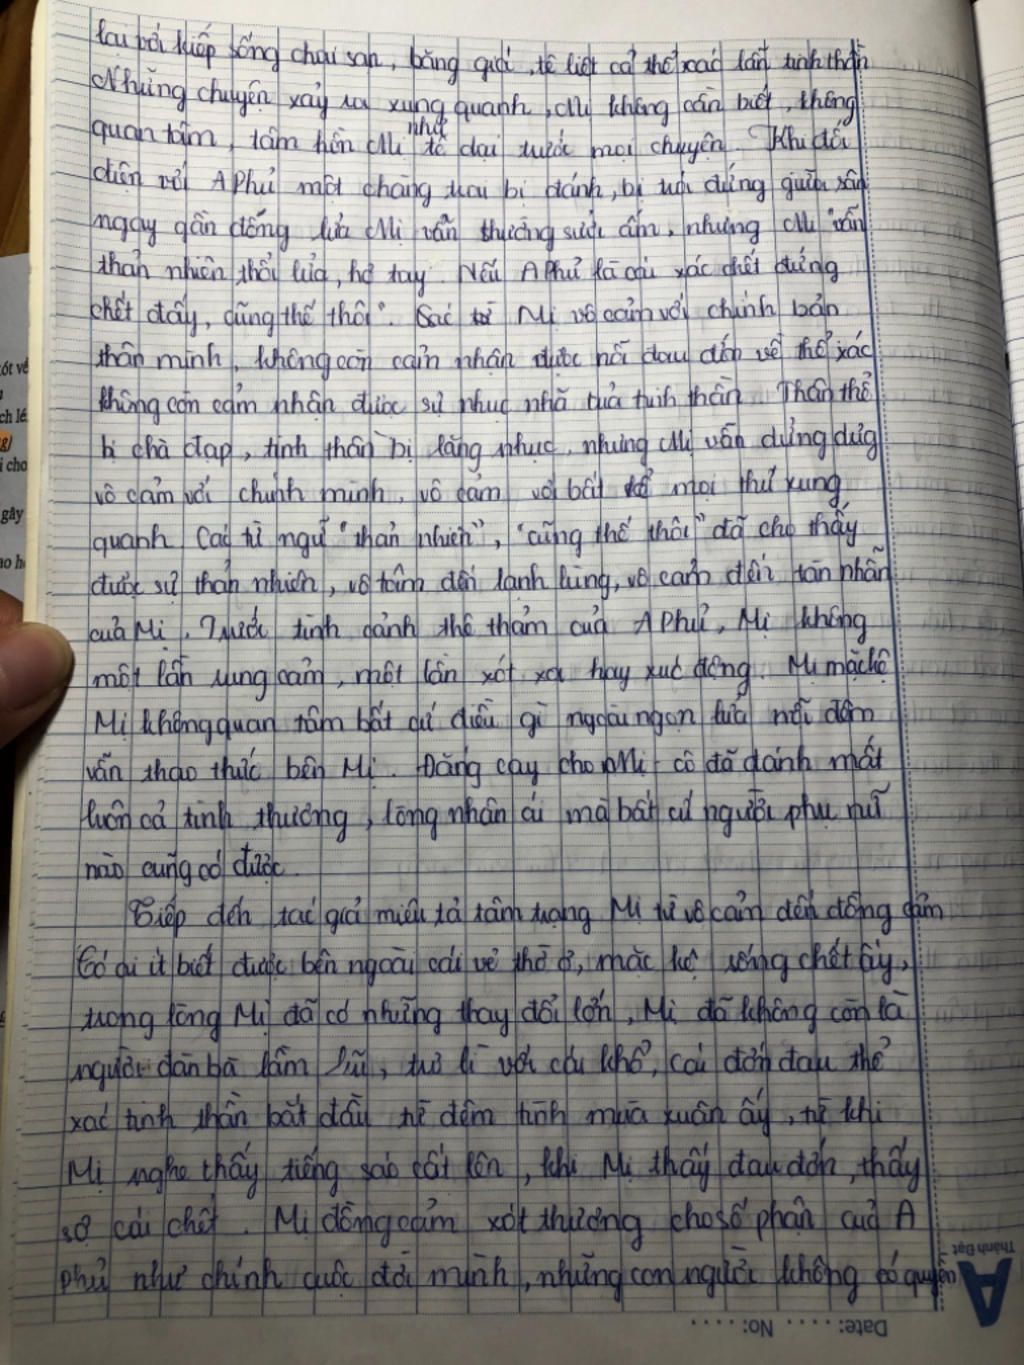 lại bởi kiếp sống chai sạn, băng giá, tê liệt cả thể xác lẫn tinh thần
Những chuyện xảy ra xung quanh, Mị không cần biết, không
quan tâm, tâm hồn Mị như tê dại trước mọi chuyện. Khi đối
diện với A Phủ một chàng trai bị đánh, bị trói đứng giữa sân
ngay gần đống lửa Mị vẫn thường sưởi ấm, nhưng Mị "vẫn
thản nhiên thổi lửa, hơ tay. Nếu A Phủ là cái xác chết đứng
chết đấy, cũng thế thôi". Mị vô cảm với chính bản
thân mình, không còn cảm nhận được nỗi đau đớn về thể xác
không còn cảm nhận được sự nhục nhã của tinh thần. Thân thể
bị chà đạp, tinh thần bị lăng nhục, nhưng Mị vẫn dửng dưg
vô cảm với chính mình, vô cảm với bất kể mọi thứ xung
quanh. Các từ ngữ "thản nhiên", "cũng thế thôi" đã cho thấy
được sự thản nhiên, vô tâm đến lạnh lùng, vô cảm đến tàn nhẫn
của Mị. Trước tình cảnh thê thảm của A Phủ, Mị không
một lần rung cảm, một lần xót xa hay xúc động. Mị mặc kệ
Mị không quan tâm bất cứ điều gì ngoài ngọn lửa mỗi đêm
vẫn thao thức bên Mị. Đắng cay cho Mị cô đã đánh mất
luôn cả tình thương, lòng nhân ái mà bất cứ người phụ nữ
nào cũng có được.
Tiếp đến tác giả miêu tả tâm trạng Mị từ vô cảm đến đồng cảm
Có ai ít biết được bên ngoài cái vẻ thờ ơ, mặc kệ sống chết ấy,
trong lòng Mị đã có những thay đổi lớn, Mị đã không còn là
người đàn bà lầm lũi, trơ lì với cái khổ, cái đớn đau thể
xác tinh thần bắt đầu từ đêm tình mùa xuân ấy, từ khi
Mị nghe thấy tiếng sáo cất lên, khi Mị thấy đau đớn, thấy
sợ cái chết. Mị đồng cảm xót thương cho số phận của A
phủ như chính cuộc đời mình, những con người không có quyền
Thành Đạt
A
Date: ..... No: .....
ốt về
ch lẻ
g)
i cho
gây